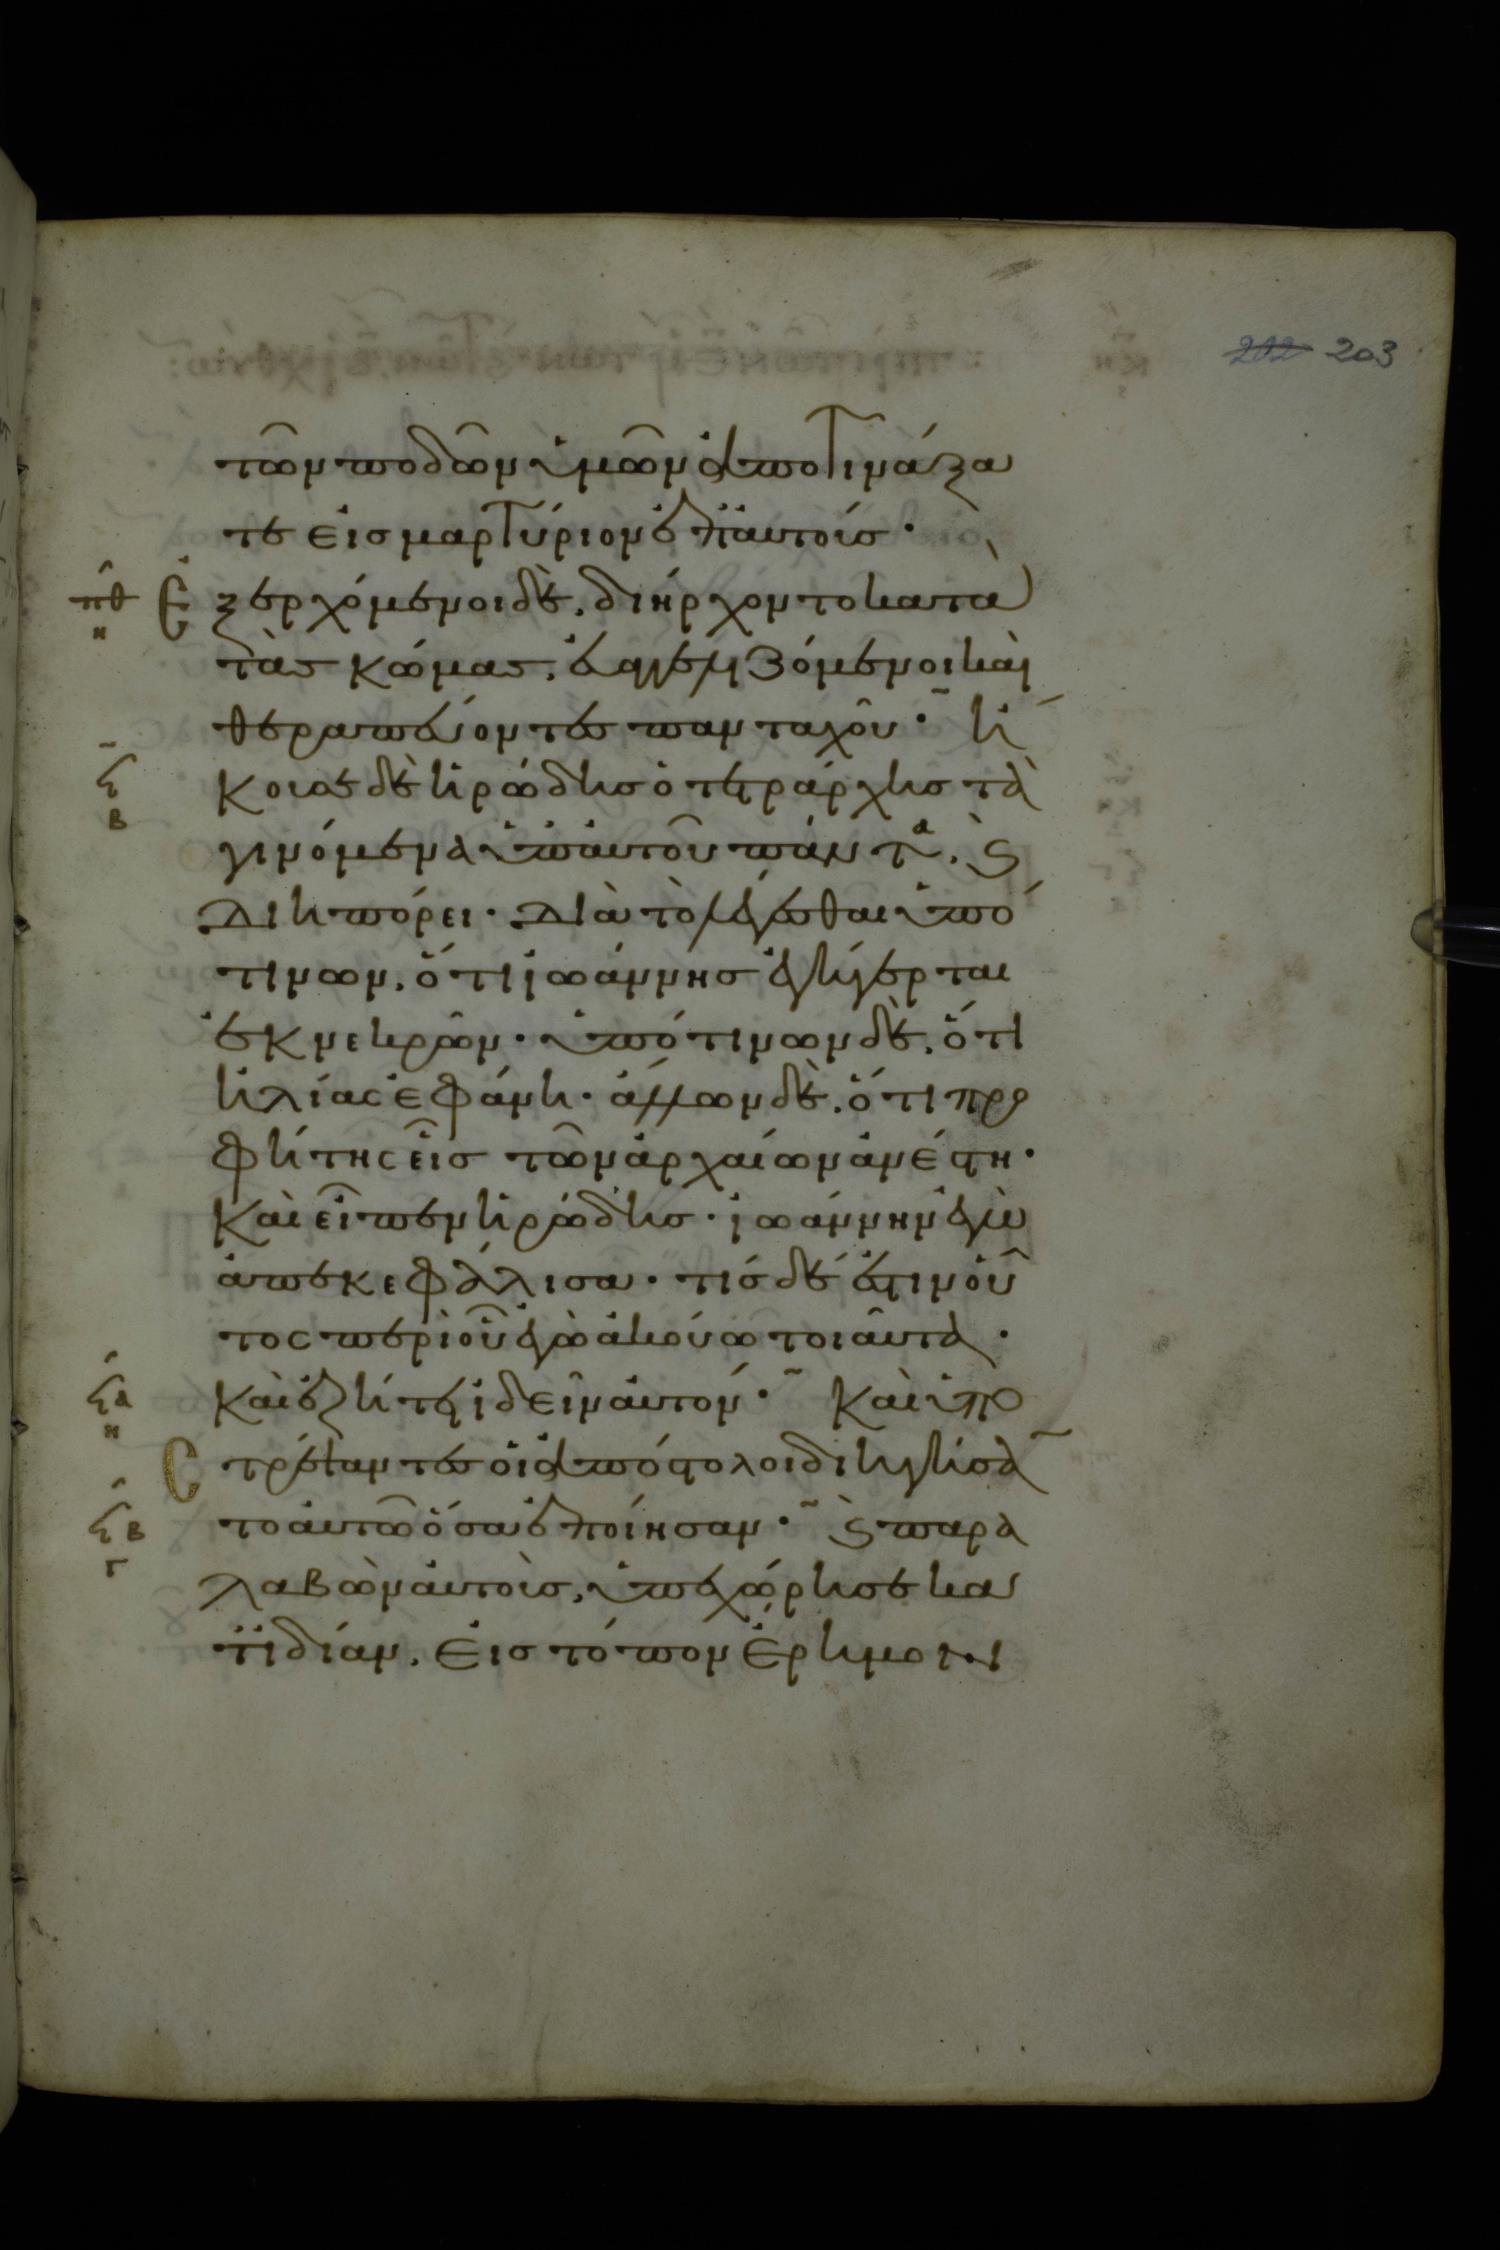 202 203
τῶν ποδῶν ὑμῶν ἀποτινάξα
τε εἰς μαρτύριον ἐπ' αὐτοίς·
πθ η Ἐξερχόμενοι δὲ, διήρχοντο κατὰ
τὰς κώμας, εὐαγγελιζόμενοι καὶ
θεραπεύοντες πανταχοῦ· ἤ
ϟ β κουσε δὲ ἡρώδης ὁ τετράρχης τὰ
γινόμενα ὑπ' αὐτοῦ πάντα. ϗ
διηπόρει· διὰ τὸ λέγεσθαι ὑπό
τινων, ὅτι ἰωάννης ἐγήγερται
ἐκ νεκρῶν· ὑπό τινων δὲ, ὅτι
ἠλίας ἐφάνη· ἄλλων δὲ, ὅτι προ
φήτης εἷς τῶν ἀρχαίων ἀνέστη·
Καὶ εἶπεν ἡρώδης· ἰωάννην ἐγὼ
ἀπεκεφάλισα· τίς δέ ἐστιν οὗ
τος περὶ οὗ ἐγὼ ἀκούω τοιαῦτα·
ϟα η Καὶ ἐζήτει ἰδεῖν αὐτον· Καὶ ὑπο
στρέψαντες οἱ ἀπόστολοι διηγήσα
ϟβ γ το αὐτῶ ὅσα ἐποίησαν· ϗ παρα
λαβὼν αὐτοὺς, ὑπεχώρησε κα
τϊδίαν, εἰς τόπον ἔρημον·